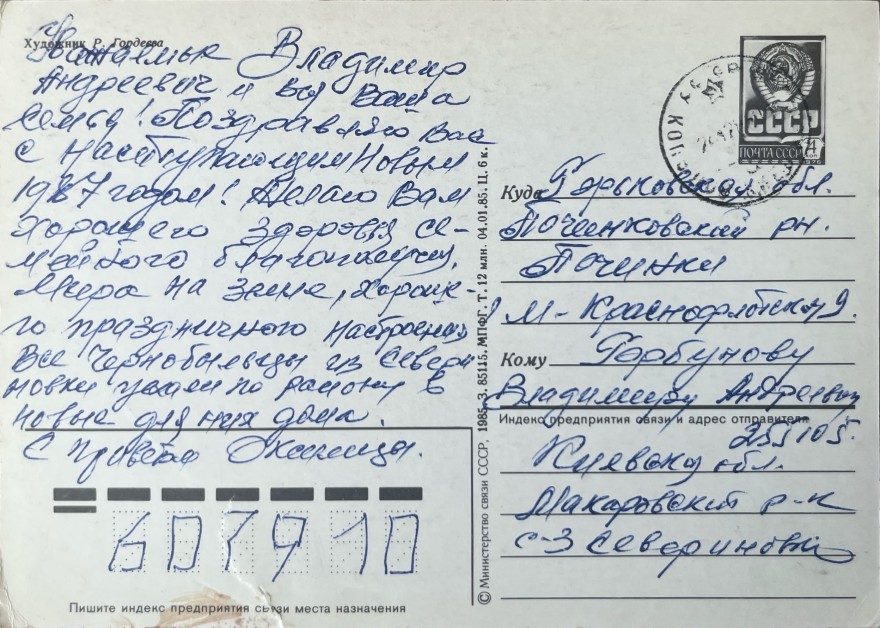 Художник Р. Гордеева
Уважаемые Владимир
Андреевич и вся Ваша
семья! Поздравляю Вас
с наступающим Новым
1987 годом! Желаю Вам
хорошего здоровья се-
мейного благополучия,
Мира на земле, хороше-
го праздничного настроения
Все Чернобыльцы из Севери
новки уехали по району в
новые для них дома.
С приветом
607910
Пишите индекс предприятия связи места назначения
© Министерство связи СССР, 1985. З. 85115. МПФГ. Т. 12 млн. 04.01.85. Ц. 6 к.
СССР
ПОЧТА СССР
4
1976
Куда Горьковская обл.
Починковский рн.
Починки
М-Краснофлотская 9.
Кому Горбунову
Владимиру Андреевичу
Индекс предприятия связи и адрес отправителя
255105.
Киевская обл.
Макаровский р-н
с-з Севериновка